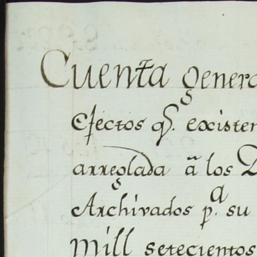 Cuenta genera
efectos qᵉ. existen
arreglada â los D
Archivados p.ᵃ su
mill setecientos